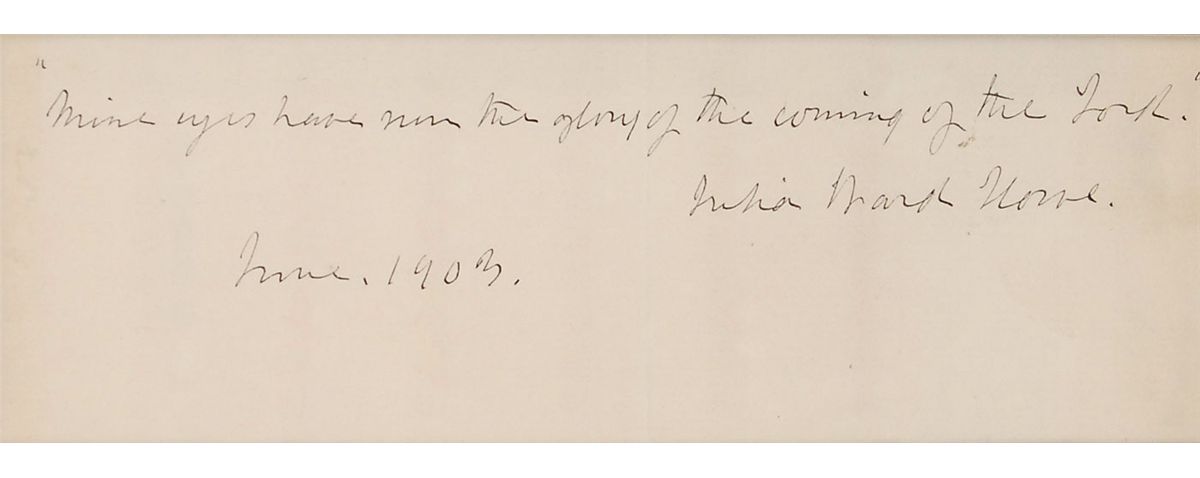 "Mine eyes have seen the glory of the coming of the Lord."
Julia Ward Howe.
June. 1903.